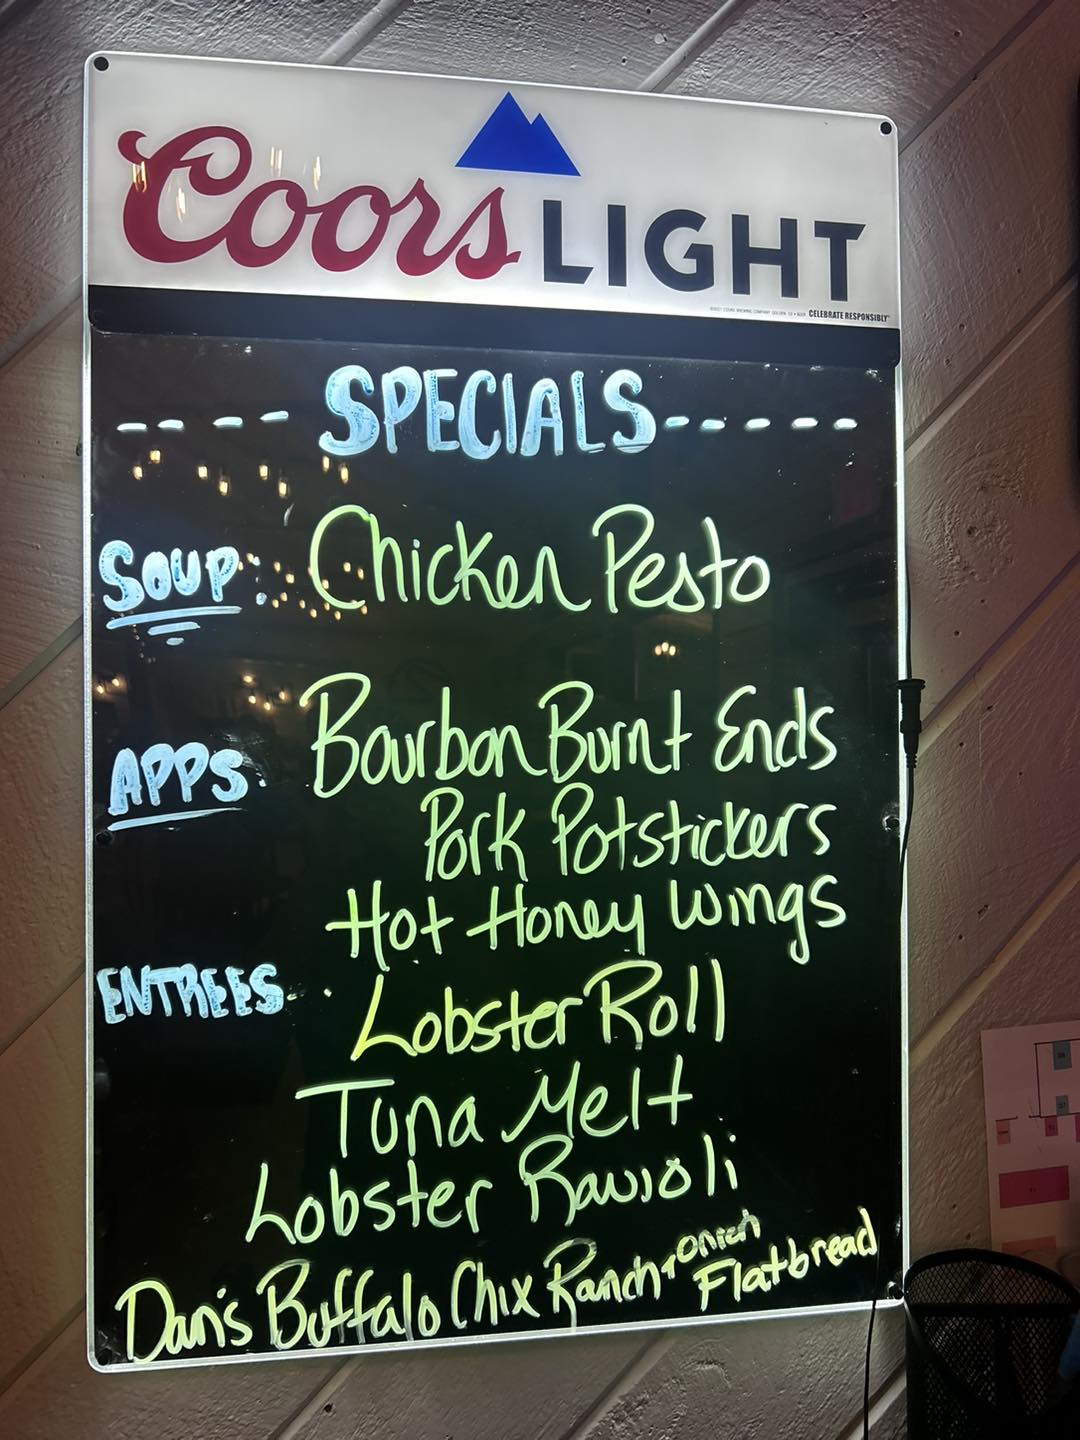 Coors LIGHT
CELEBRATE RESPONSIBLY
--- SPECIALS -----
SOUP: Chicken Pesto
APPS: Bourbon Burnt Ends
Pork Potstickers
Hot Honey Wings
ENTREES: Lobster Roll
Tuna Melt
Lobster Ravioli
Dan's Buffalo Chix Ranch + onion Flatbread